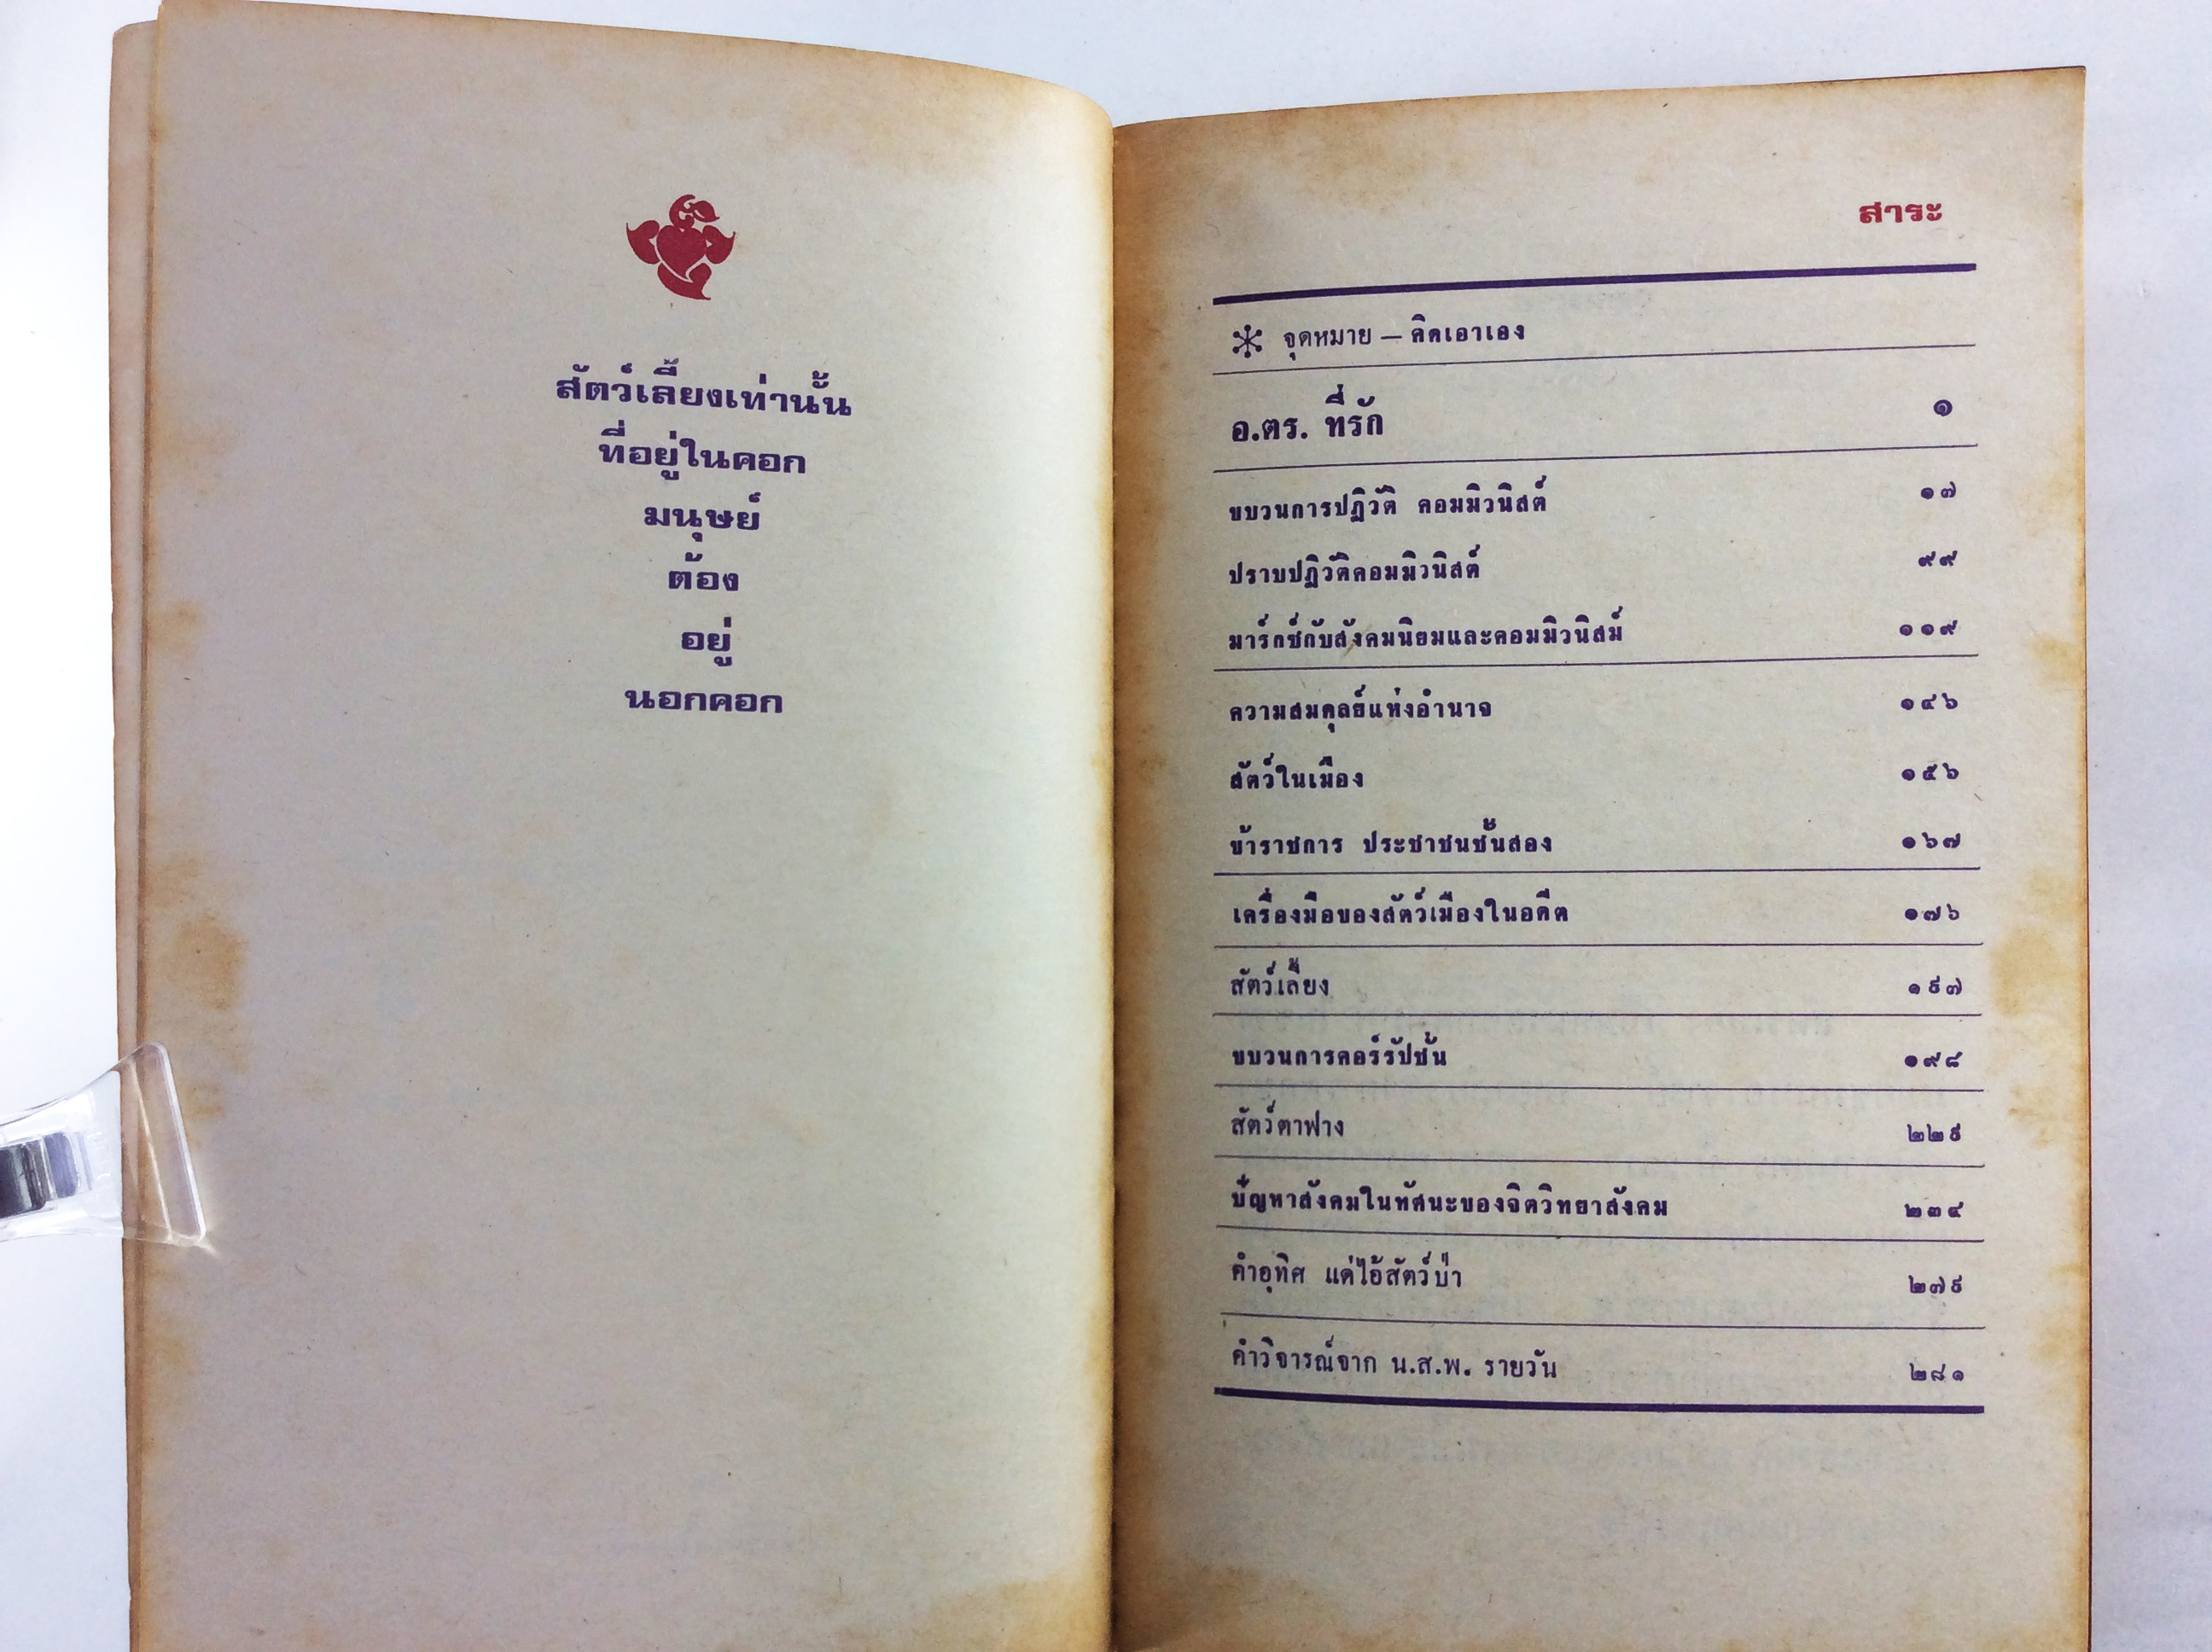 สัตว์เลี้ยงเท่านั้น
ที่อยู่ในคอก
มนุษย์
ต้อง
อยู่
นอกคอก
สาระ
จุดหมาย — คิดเอาเอง
อ.ตร. ที่รัก ๑
ขบวนการปฏิวัติ คอมมิวนิสต์ ๑๗
ปราบปฏิวัติคอมมิวนิสต์ ๙๙
มาร์กซ์กับสังคมนิยมและคอมมิวนิสม์ ๑๑๙
ความสมดุลย์แห่งอำนาจ ๑๔๖
สัตว์ในเมือง ๑๕๖
ข้าราชการ ประชาชนชั้นสอง ๑๖๗
เครื่องมือของสัตว์เมืองในอดีต ๑๗๖
สัตว์เลี้ยง ๑๙๗
ขบวนการคอร์รัปชั่น ๑๙๘
สัตว์ตาฟาง ๒๒๙
ปัญหาสังคมในทัศนะของจิตวิทยาสังคม ๒๓๔
คำอุทิศ แด่ไอ้สัตว์ป่า ๒๗๙
คำวิจารณ์จาก น.ส.พ. รายวัน ๒๘๑